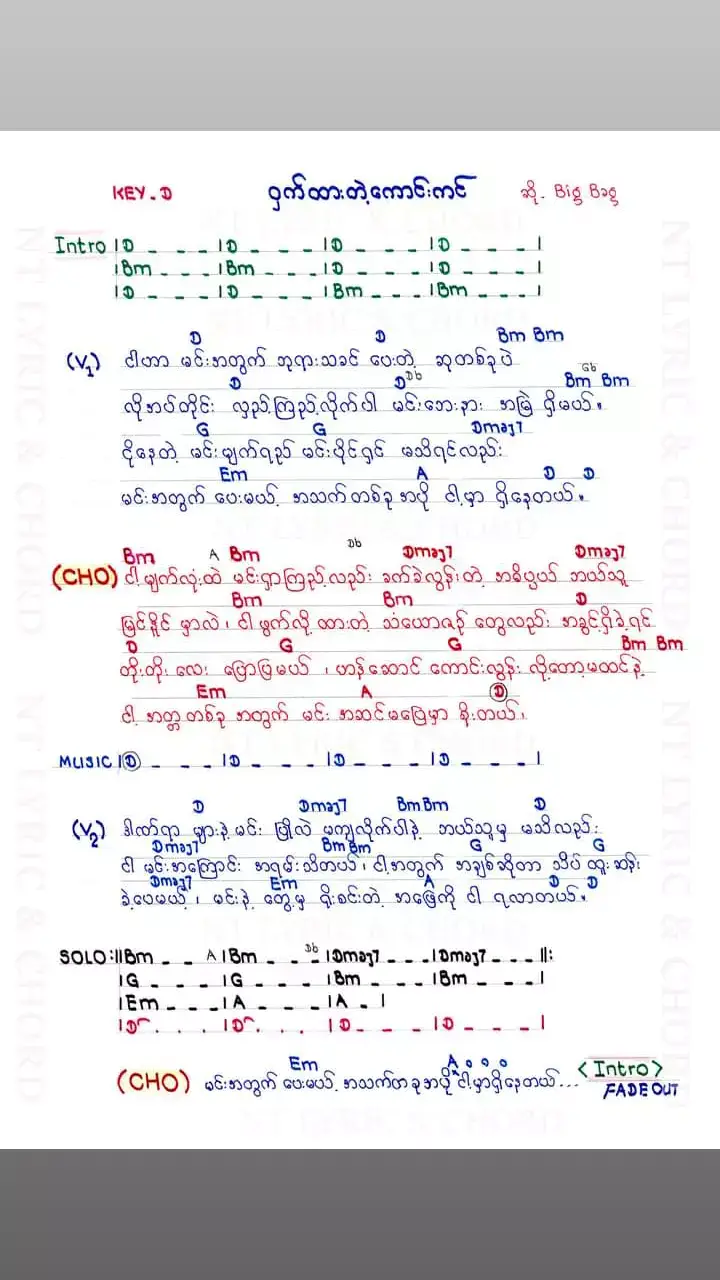 KEY - D ဝှက်ထားတဲ့ကောင်းကင် ဆို - Big Bag
Intro |D _ _ _ |D _ _ _ |D _ _ _ |D _ _ _ |
|Bm _ _ _ |Bm _ _ _ |D _ _ _ |D _ _ _ |
|D _ _ _ |D _ _ _ |Bm _ _ _ |Bm _ _ _ |
D D Bm Bm
(V1) ငါဟာ မင်းအတွက် ဘုရားသခင် ပေးတဲ့ ဆုတစ်ခုပဲ
D D Db Bm Gb Bm
လိုအပ်တိုင်း လှည့်ကြည့်လိုက်ပါ မင်းဘေးနား အမြဲ ရှိမယ်။
G G Dmaj7
ငိုနေတဲ့ မင်းမျက်ရည် မင်းပိုင်ရှင် မသိရင်လည်း
Em A D D
မင်းအတွက် ပေးမယ့် အသက်တစ်ခု အပို ငါ့မှာ ရှိနေတယ်။
Bm A Bm Db Dmaj7 Dmaj7
(CHO) ငါ့မျက်လုံးထဲ မင်းရှာကြည့်လည်း ခက်ခဲလွန်းတဲ့ အဓိပ္ပယ် ဘယ်သူ
Bm Bm D
မြင်နိုင် မှာလဲ၊ ငါ ဖွက်လို့ ထားတဲ့ သံယောဇဉ် တွေလည်း အခွင့်ရှိခဲ့ရင်
D G G Bm Bm
တိုးတိုး လေး ပြောပြမယ် ၊ ဟန်ဆောင် ကောင်းလွန်း လို့တော့မထင်နဲ့
Em A D
ငါ့ အတ္တတစ်ခု အတွက် မင်း အဆင်မပြေမှာ စိုးတယ်၊
MUSIC |D _ _ _ |D _ _ _ |D _ _ _ |D _ _ _ |
D Dmaj7 Bm Bm D
(V2) ဒါဏ်ရာ များနဲ့ မင်း ပြိုလဲ မကျလိုက်ပါနဲ့ ဘယ်သူမှ မသိလည်း
Dmaj7 Bm Bm G G
ငါ မင်းအကြောင်း အရမ်းသိတယ်၊ ငါ့အတွက် အချစ်ဆိုတာ သိပ် ထူးဆန်း
Dmaj7 Em A D D
ခဲ့ပေမယ့် ၊ မင်းနဲ့ တွေ့မှ ရိုးစင်းတဲ့ အဖြေကို ငါ ရလာတယ်။
SOLO :||Bm _ _ A |Bm _ _ Db _ |Dmaj7 _ _ _ |Dmaj7 _ _ _ ||:
|G _ _ _ |G _ _ _ |Bm _ _ _ |Bm _ _ _ |
|Em _ _ _ |A _ _ _ |A _ |
|D . . . |D . . . |D _ _ _ |D _ _ _ |
Em A
(CHO) မင်းအတွက် ပေးမယ့် အသက်တခုအပို ငါ့မှာရှိနေတယ်... <Intro>
FADE OUT
NT LYRIC & CHORD
NT LYRIC & CHORD
NT LYRIC & CHORD
NT LYRIC & CHORD